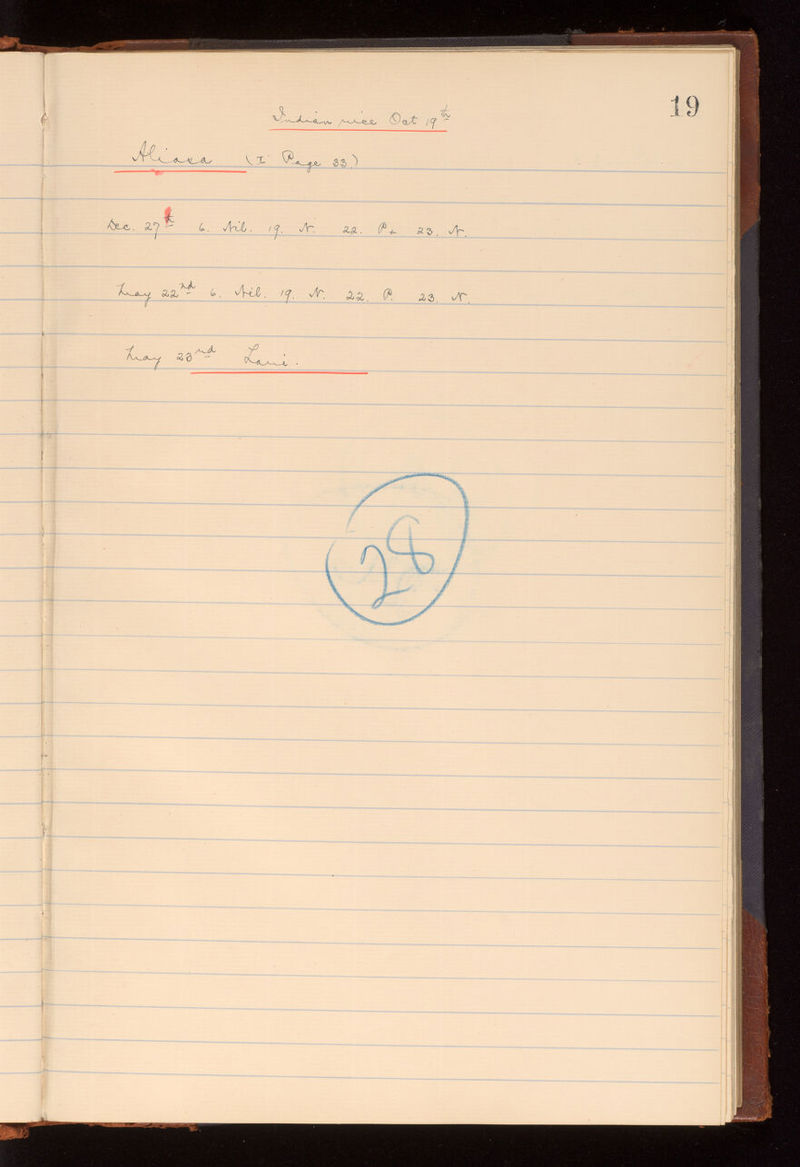 19
Indian rice Oct 19th
Aliasa (I Page 33)
Dec. 27th 6. Nil. 19. N. 22. P+ 23. N.
May 22nd 6. Nil. 19. N. 22. P. 23. N.
May 23rd
28